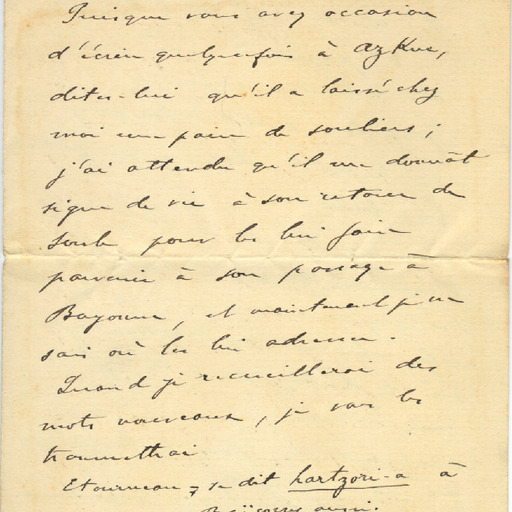 Puisque vous avez occasion
d'écrire quelquefois à Azkue,
dites-lui qu'il a laissé chez
moi une paire de souliers ;
j'ai attendu qu'il me donnât
signe de vie à son retour de
Soule pour les lui faire
parvenir à son passage à
Bayonne, et maintenant je ne
sais où les lui adresser.
Quand je recueillerai des
mots nouveaux, je vous les
transmettrai
Etourneau, se dit hartzori-a à
aussi.